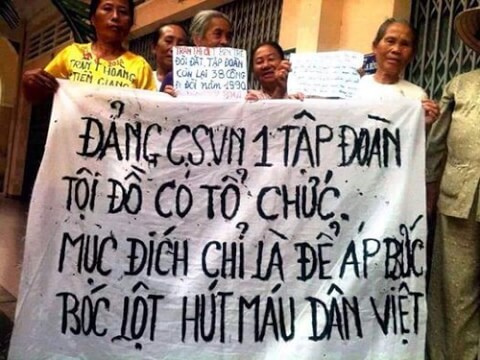 TRẦN HOÀNG
TIỀN GIANG
ĐÒI ĐẤT, TẬP ĐOÀN
CÒN LẠI 38 CÔNG
ĐÒI NĂM 1990
ĐẢNG C.S.VN 1 TẬP ĐOÀN
TỘI ĐỒ CÓ TỔ CHỨC.
MỤC ĐÍCH CHỈ LÀ ĐỂ ÁP BỨC
BÓC LỘT HÚT MÁU DÂN VIỆT